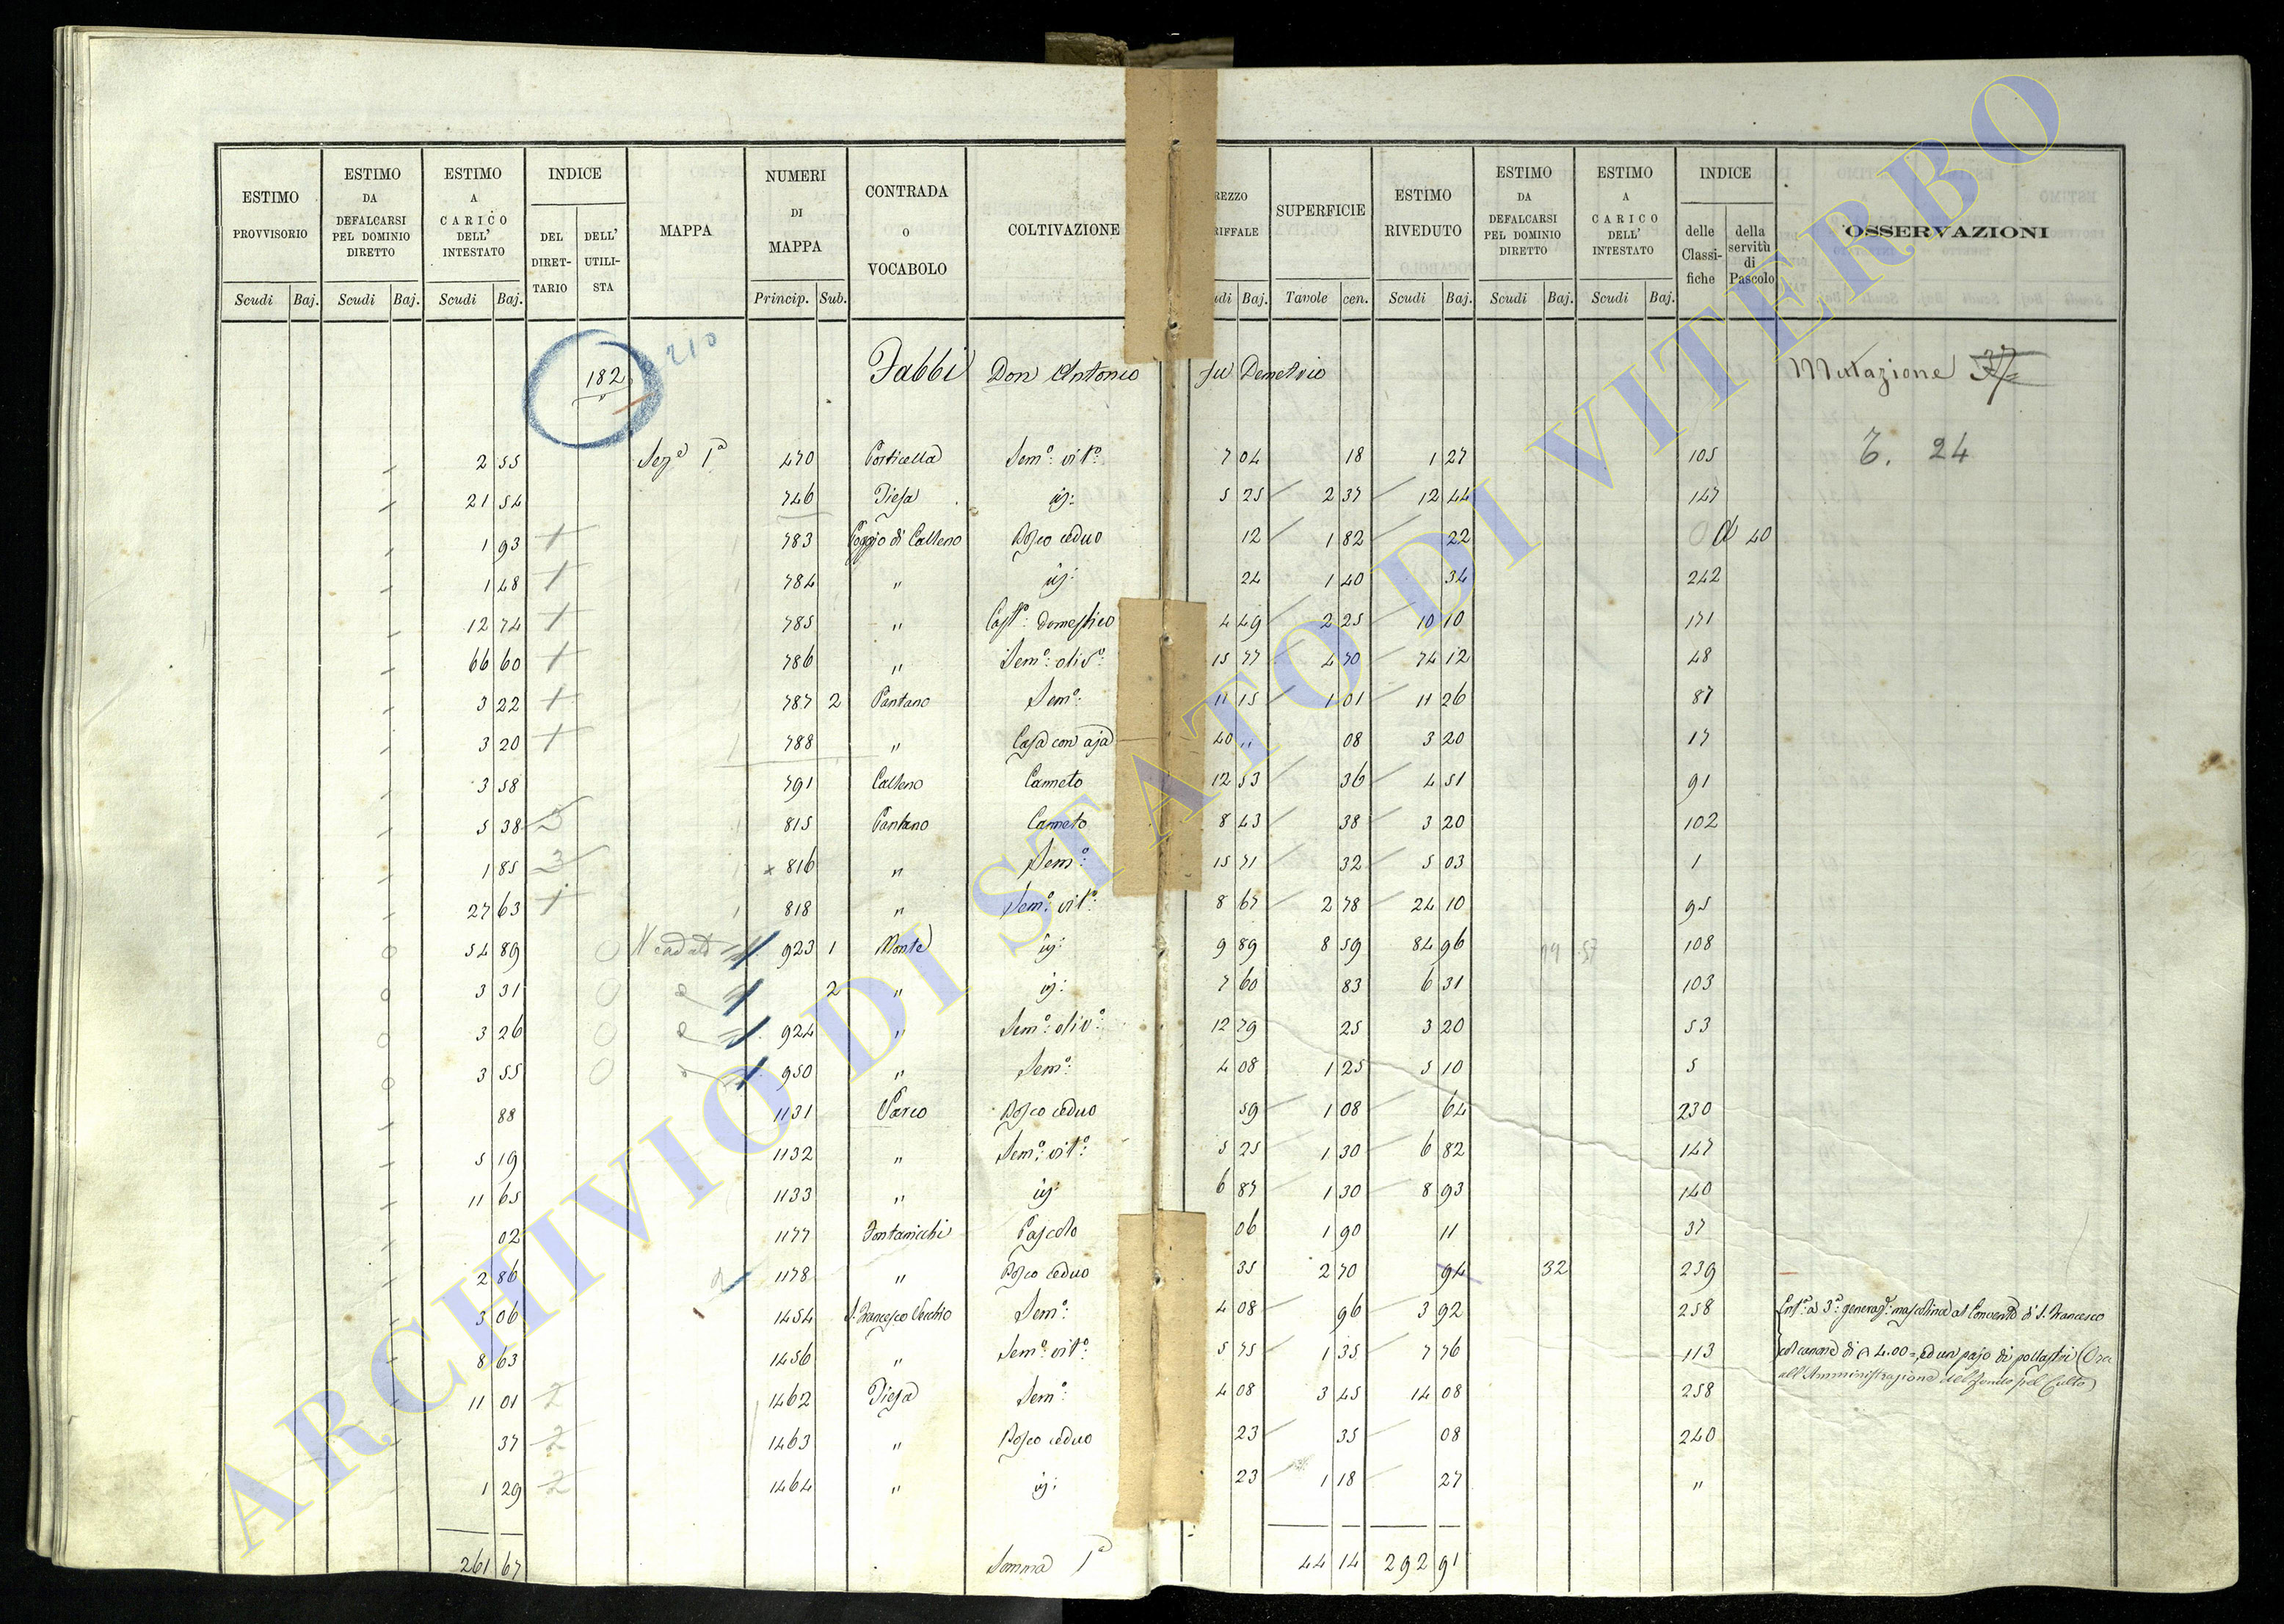 ESTIMO PROVVISORIO | ESTIMO DA DEFALCARSI PEL DOMINIO DIRETTO | ESTIMO A CARICO DELL' INTESTATO | INDICE | MAPPA | NUMERI DI MAPPA | CONTRADA O VOCABOLO | COLTIVAZIONE | REZZO RIFFALE | SUPERFICIE | ESTIMO RIVEDUTO | ESTIMO DA DEFALCARSI PEL DOMINIO DIRETTO | ESTIMO A CARICO DELL' INTESTATO | INDICE | OSSERVAZIONI
DEL DIRET-TARIO | DELL' UTILI-STA | delle Classi-fiche | della servitù di Pascolo
Scudi | Baj. | Scudi | Baj. | Scudi | Baj. | Princip. | Sub. | udi | Baj. | Tavole | cen. | Scudi | Baj. | Scudi | Baj. | Scudi | Baj.
182 210 Fabbi Don Antonio fu Demetrio Mutazione 37
2 55 Sez.e 1a 470 Porticella Sem.o vit.o 7 04 18 1 27 105 T. 24
21 54 746 Piesa id: 5 25 2 37 12 44 147
1 93 1 783 Poggio di Calleno Bosco ceduo 12 1 82 22 40
1 48 1 784 " id: 24 1 40 34 242
12 74 1 785 " Cast.o domestico 4 49 2 25 10 10 171
66 60 1 786 " Sem.o oliv.o 15 77 4 70 74 12 48
3 22 1 787 2 Pantano Sem.o 11 15 1 01 11 26 87
3 20 1 788 " Casa con aja 40 " 08 3 20 17
3 58 791 Calleno Canneto 12 53 36 4 51 91
5 38 3 815 Pantano Canneto 8 43 38 3 20 102
1 85 3 x 816 " Sem.o 15 71 32 5 03 1
27 63 1 818 " Sem.o vit.o 8 67 2 78 24 10 95
0 54 89 0 923 1 Monte id: 9 89 8 59 84 96 108
0 3 31 0 2 " id: 7 60 83 6 31 103
0 3 26 0 924 " Sem.o oliv.o 12 79 25 3 20 53
0 3 55 0 950 " Sem.o 4 08 1 25 5 10 5
88 1131 Varco Bosco ceduo 59 1 08 64 230
5 19 1132 " Sem.o vit.o 5 25 1 30 6 82 147
11 65 1133 " id: 6 87 1 30 8 93 140
02 1177 Fontanicchi Pascolo 06 1 90 11 37
2 86 1178 " Bosco ceduo 35 2 70 94 32 239
3 06 1454 S. Francesco Vecchio Sem.o 4 08 96 3 92 258 Enf.a a 3.a generaz.e mascolina al Convento di S. Francesco
8 63 1456 " Sem.o vit.o 5 75 1 35 7 76 113 col canone di 4.00 =, ed un pajo di pollastri (Ora
all'Amministrazione del fondo pel Culto)
11 01 2 1462 Piesa Sem.o 4 08 3 45 14 08 258
37 2 1463 " Bosco ceduo 23 35 08 240
1 29 2 1464 " id: 23 1 18 27 "
261 67 Somma 1a 44 14 292 91
ARCHIVIO DI STATO DI VITERBO